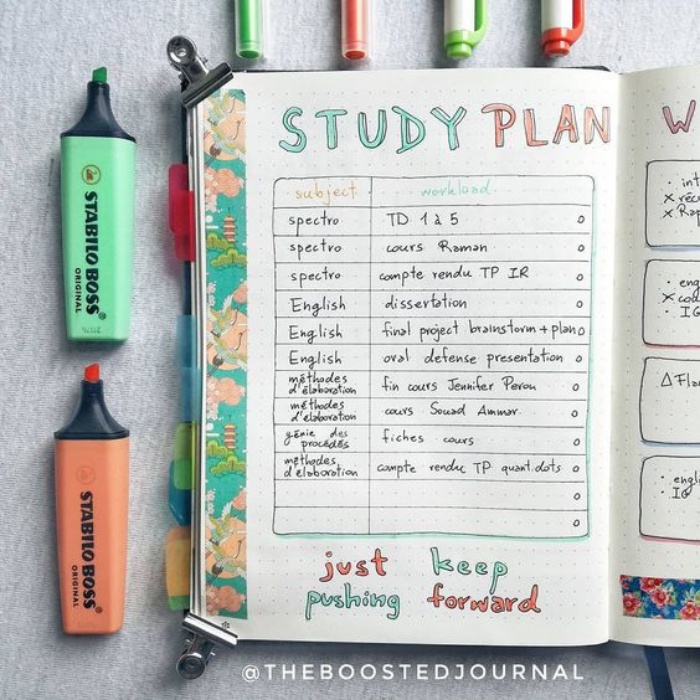 STUDY PLAN
subject workload
spectro TD 1 à 5
spectro cours Raman
spectro compte rendu TP IR
English dissertation
English final project brainstorm + plan
English oral defense presentation
méthodes d'élaboration fin cours Jennifer Peron
méthodes d'élaboration cours Souad Ammar
génie des procédés fiches cours
méthodes d'élaboration compte rendu TP quant.dots
just keep
pushing forward
@THEBOOSTEDJOURNAL
STABILO BOSS
ORIGINAL
STABILO BOSS
ORIGINAL
W
· int
x
x Rap
· eng
x cod
· IG
Δ Fla
· engl
· IG